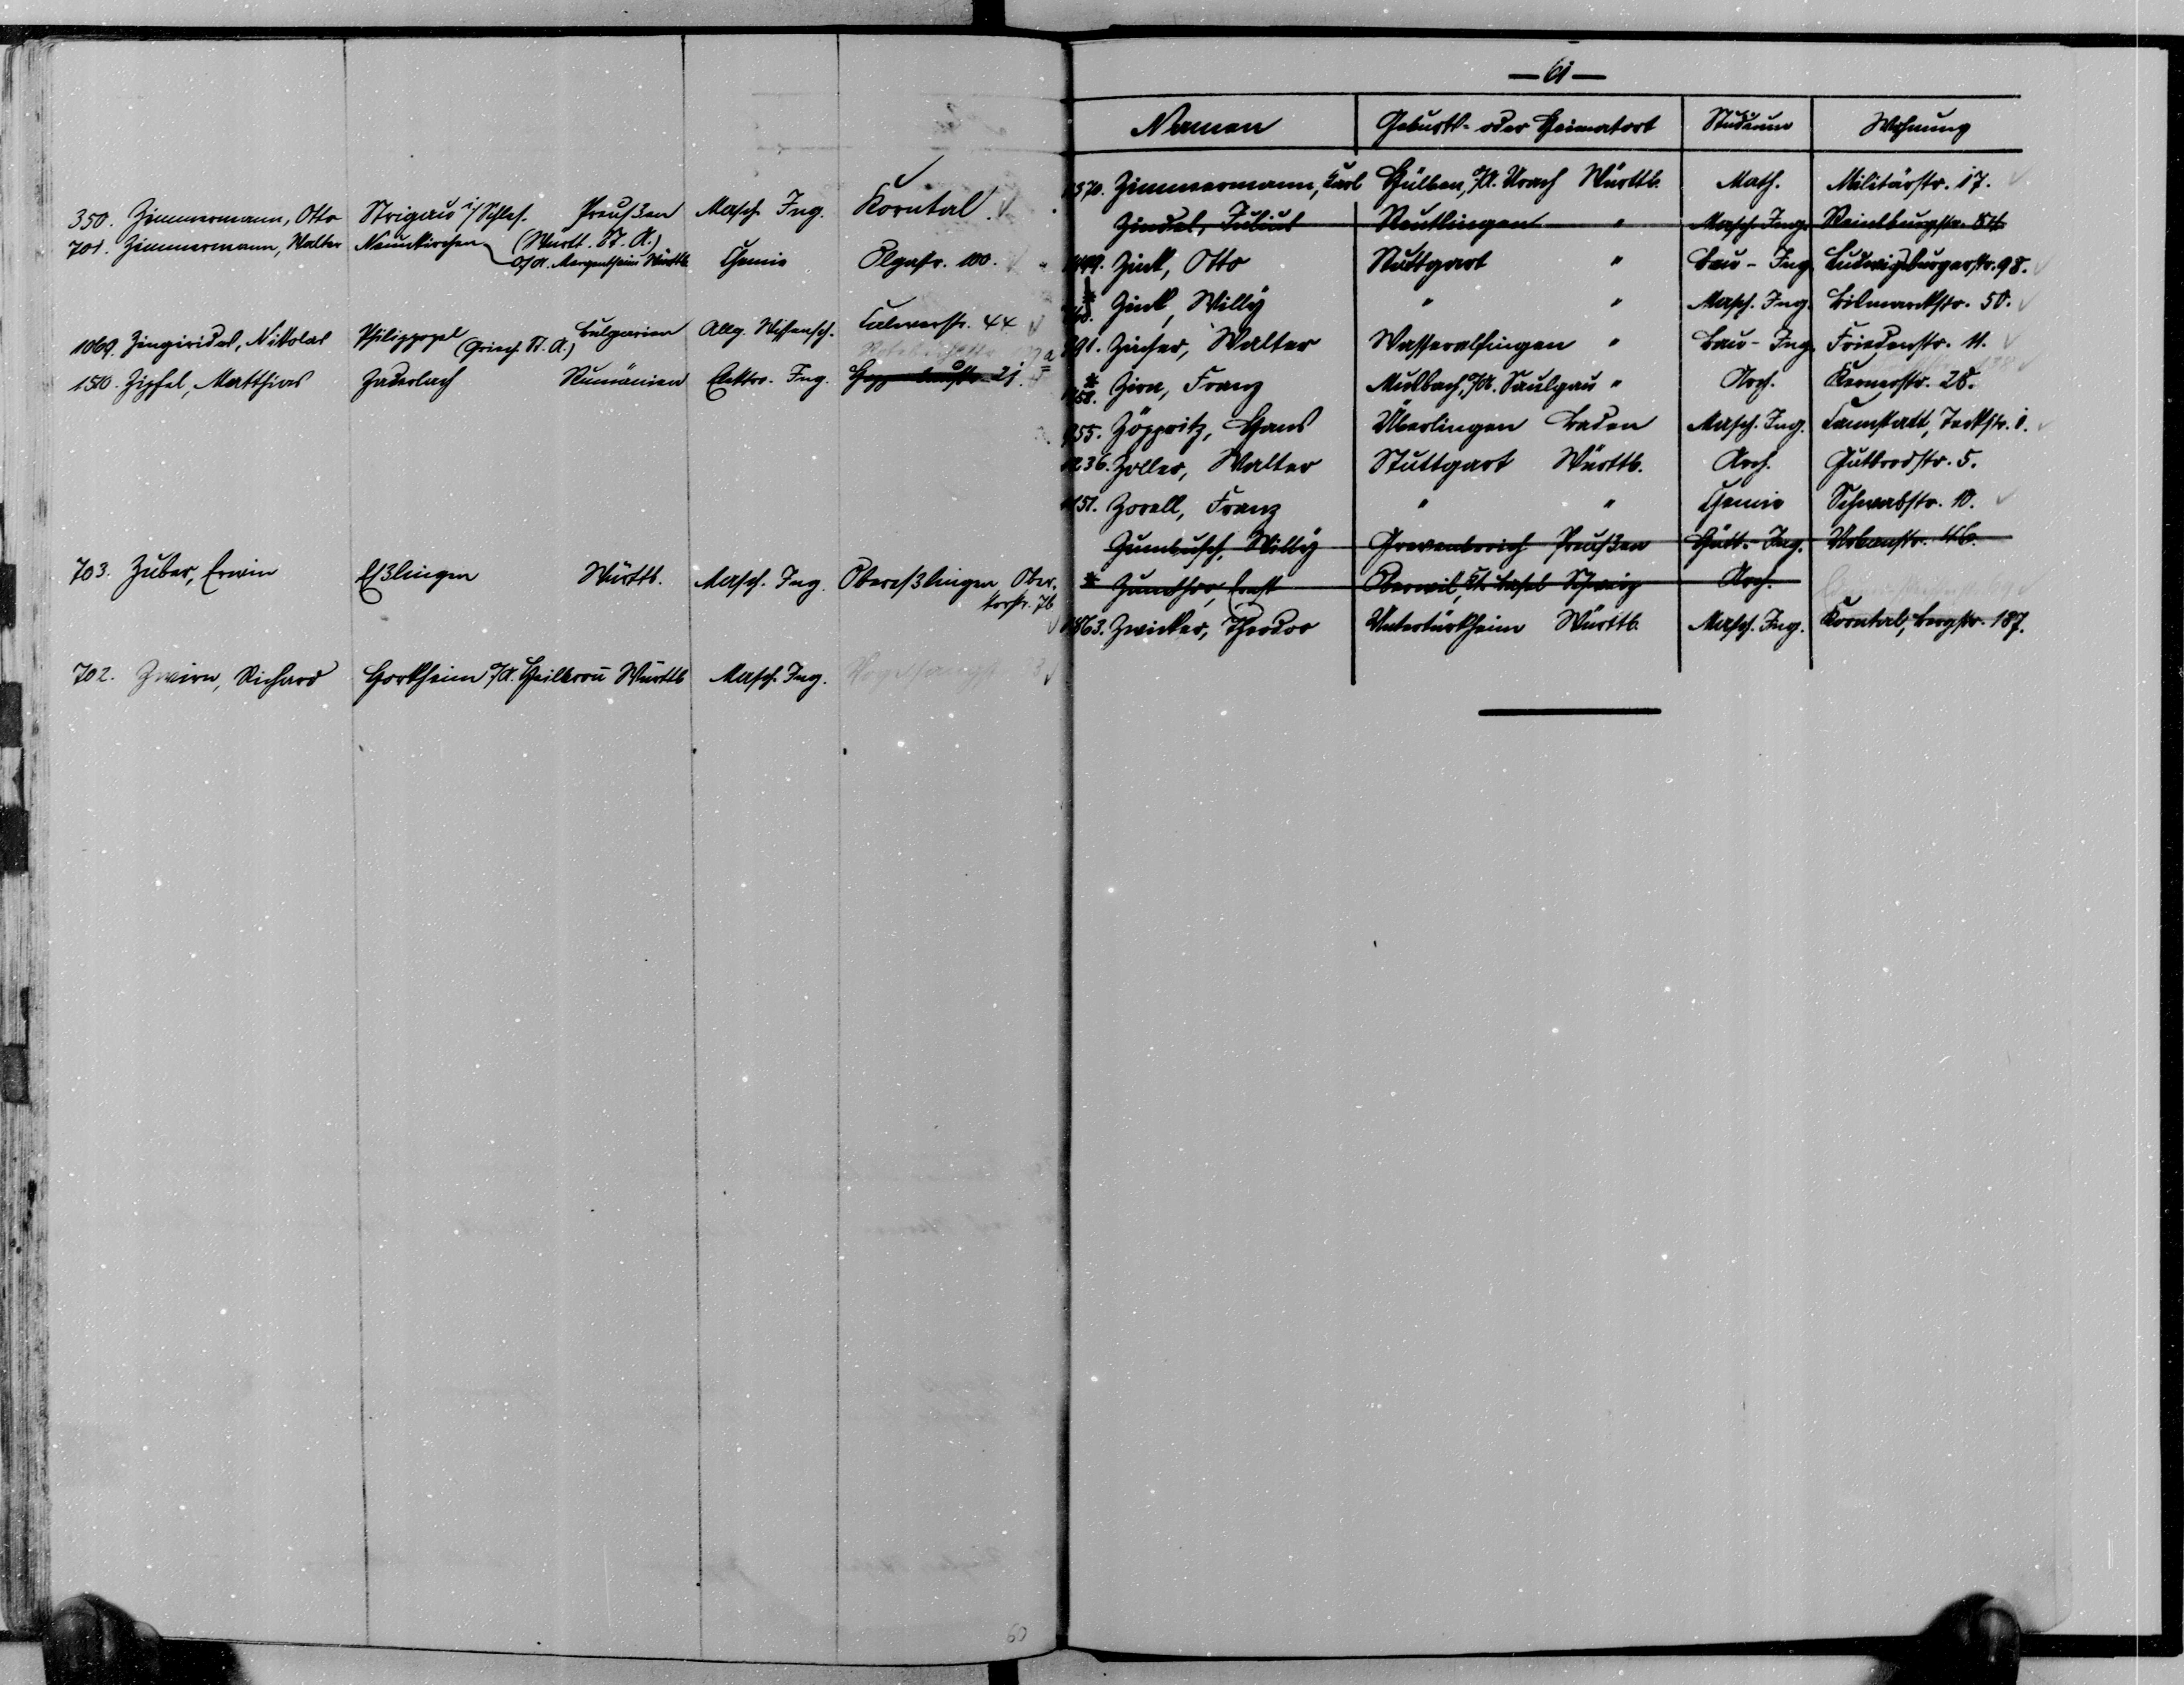 350. Zimmermann, Otto Strigau i/Schles. Preußen Masch. Ing. Korntal.
701. Zimmermann, Walter Neunkirchen (Württ. St. A.)
O/A. Mergentheim Württb. Chemie Olgastr. 100.
1069. Zingirides, Nikolas Philippopel (Griech. St. A.) Bulgarien Allg. Wissensch. Calwerstr. 44
1510. Zipfel, Matthias Zaderlach Rumänien Elektro-Ing. 21.
703. Zuber, Erwin Eßlingen Württb. Masch. Ing. Obereßlingen, Ober-
torstr. 76
702. Zwirn, Richard Horkheim O/A. Heilbronn Württb. Masch. Ing.
60
— 61 —
Namen Geburts- oder Heimatort Studium Wohnung
1370. Zimmermann, Karl Hülben, O/A. Urach Württb. Math. Militärstr. 17.
Zindel, Julius Reutlingen " Masch. Ing. Reinsburgstr.
Zink, Otto Stuttgart " Bau-Ing. Ludwigsburgerstr. 98.
* Zink, Willy " " Masch. Ing. Bismarckstr. 50.
891. Zircher, Walter Wasseralfingen " Bau-Ing. Friedenstr. 11.
* Zirn, Franz O/A. Saulgau " Arch. Kernerstr. 28.
955. Zöppritz, Hans Überlingen Baden Masch. Ing. Cannstatt, Teckstr. 1.
1236. Zoller, Walter Stuttgart Württb. Arch. Gutbrodstr. 5.
1151. Zorell, Franz " " Chemie Schwabstr. 10.
Zumbusch, Willy Grevenbroich Preußen Hütt.-Ing. Urbanstr. 46.
* Zumthor, Ernst Oberwil, Kt. Basel Schweiz Arch.
1863. Zwicker, Theodor Untertürkheim Württb. Masch. Ing. Korntal, Bergstr. 187.